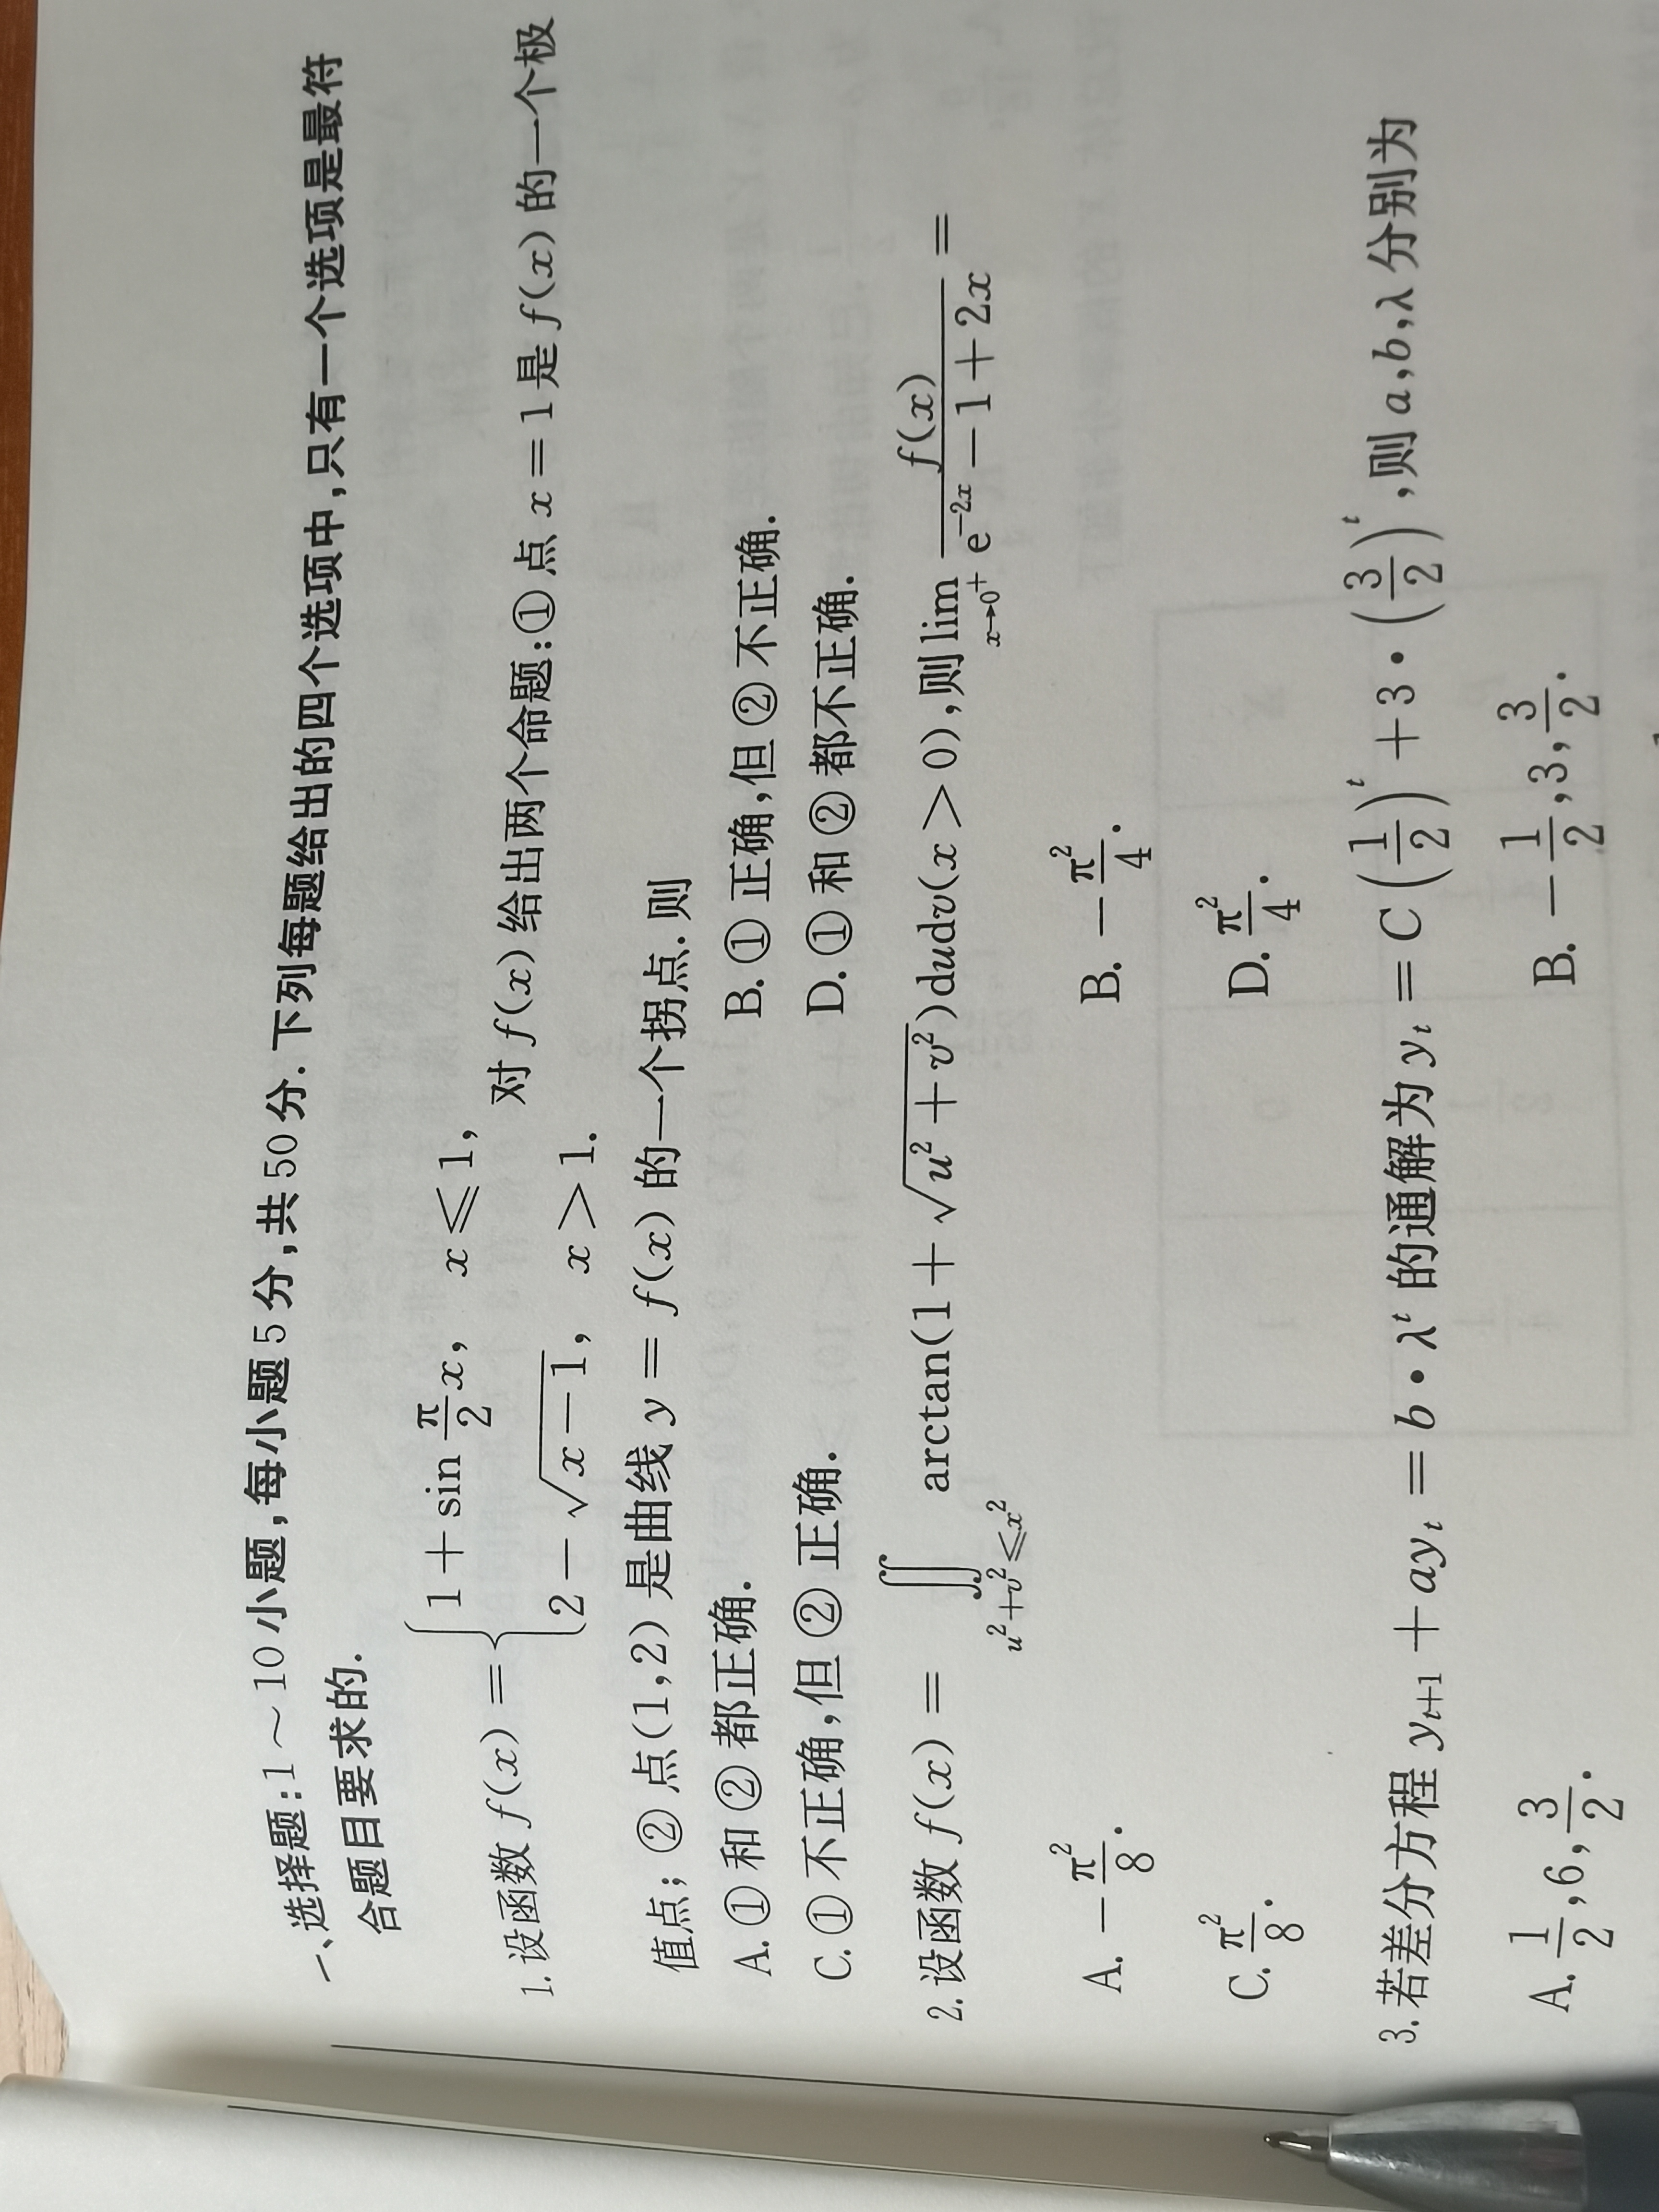 一、选择题:1～10小题,每小题5分,共50分.下列每题给出的四个选项中,只有一个选项是最符
合题目要求的.
1.设函数 f(x) = { 1 + sin π/2 x, x ⩽ 1, 2 − √(x−1), x > 1. 对 f(x) 给出两个命题:①点 x = 1 是 f(x) 的一个极
值点;②点(1,2)是曲线 y = f(x) 的一个拐点.则
A.①和②都正确. B.①正确,但②不正确.
C.①不正确,但②正确. D.①和②都不正确.
2.设函数 f(x) = ∬_{u²+v²⩽x²} arctan(1 + √(u² + v²))dudv(x > 0),则 lim_{x→0⁺} f(x)/(e^{−2x} − 1 + 2x) =
A. −π²/8. B. −π²/4.
C. π²/8. D. π²/4.
3.若差分方程 y_{t+1} + ay_t = b · λ^t 的通解为 y_t = C(1/2)^t + 3 · (3/2)^t,则 a,b,λ 分别为
A. 1/2,6,3/2. B. −1/2,3,3/2.